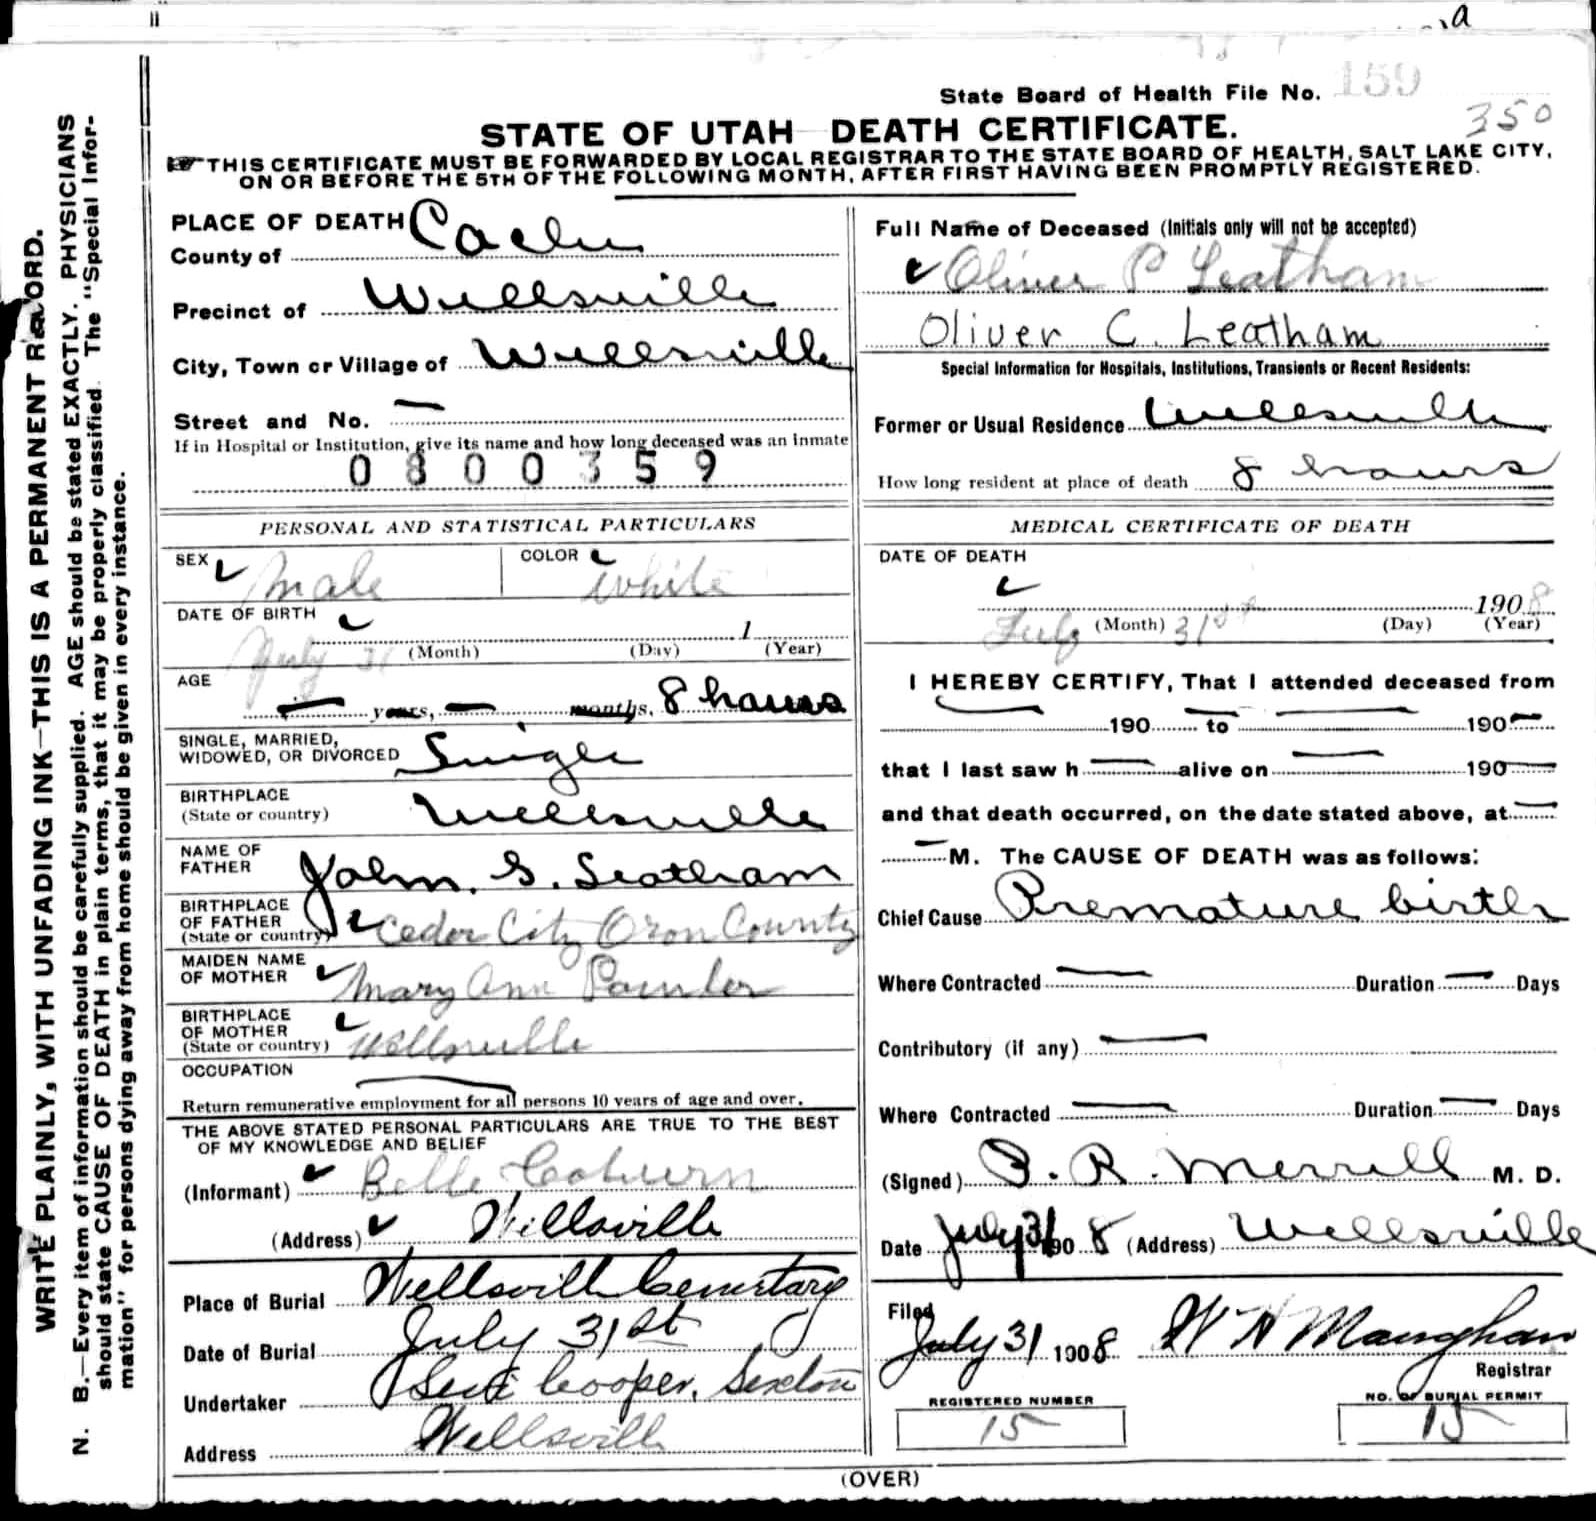 a
State Board of Health File No. 159
350
STATE OF UTAH DEATH CERTIFICATE.
THIS CERTIFICATE MUST BE FORWARDED BY LOCAL REGISTRAR TO THE STATE BOARD OF HEALTH, SALT LAKE CITY,
ON OR BEFORE THE 5TH OF THE FOLLOWING MONTH, AFTER FIRST HAVING BEEN PROMPTLY REGISTERED.
WRITE PLAINLY, WITH UNFADING INK—THIS IS A PERMANENT RECORD.
N. B.—Every item of information should be carefully supplied. AGE should be stated EXACTLY. PHYSICIANS
should state CAUSE OF DEATH in plain terms, that it may be properly classified. The "Special Infor-
mation" for persons dying away from home should be given in every instance.
PLACE OF DEATH
County of Cache
Precinct of Wellsville
City, Town or Village of Wellsville
Street and No. —
If in Hospital or Institution, give its name and how long deceased was an inmate
0800359
PERSONAL AND STATISTICAL PARTICULARS
SEX Male COLOR White
DATE OF BIRTH
1
July 31 (Month) (Day) (Year)
AGE
— years, — months, 8 hours
SINGLE, MARRIED,
WIDOWED, OR DIVORCED Single
BIRTHPLACE
(State or country) Wellsville
NAME OF
FATHER John. G. Leatham
BIRTHPLACE
OF FATHER
(State or country) Cedar City Oron County
MAIDEN NAME
OF MOTHER Mary Ann
BIRTHPLACE
OF MOTHER
(State or country) Wellsville
OCCUPATION
—
Return remunerative employment for all persons 10 years of age and over.
THE ABOVE STATED PERSONAL PARTICULARS ARE TRUE TO THE BEST
OF MY KNOWLEDGE AND BELIEF
(Informant) Belle Coburn
(Address) Wellsville
Place of Burial Wellsvill Cemetary
Date of Burial July 31st
Undertaker Cooper, Sexton
Address Wellsvill
Full Name of Deceased (Initials only will not be accepted)
Oliver P Leatham
Oliver C. Leatham
Special Information for Hospitals, Institutions, Transients or Recent Residents:
Former or Usual Residence Wellsville
How long resident at place of death 8 hours
MEDICAL CERTIFICATE OF DEATH
DATE OF DEATH
1908
July (Month) 31st (Day) (Year)
I HEREBY CERTIFY, That I attended deceased from
— 190 — to — 190 —
that I last saw h — alive on — 190 —
and that death occurred, on the date stated above, at —
— M. The CAUSE OF DEATH was as follows:
Chief Cause Premature birth
Where Contracted — Duration — Days
Contributory (if any) —
Where Contracted — Duration — Days
(Signed) P. R. Merrell M. D.
Date July 31 1908 (Address) Wellsville
Filed
July 31 1908 W H Maughan
Registrar
REGISTERED NUMBER
15
NO. OF BURIAL PERMIT
15
(OVER)